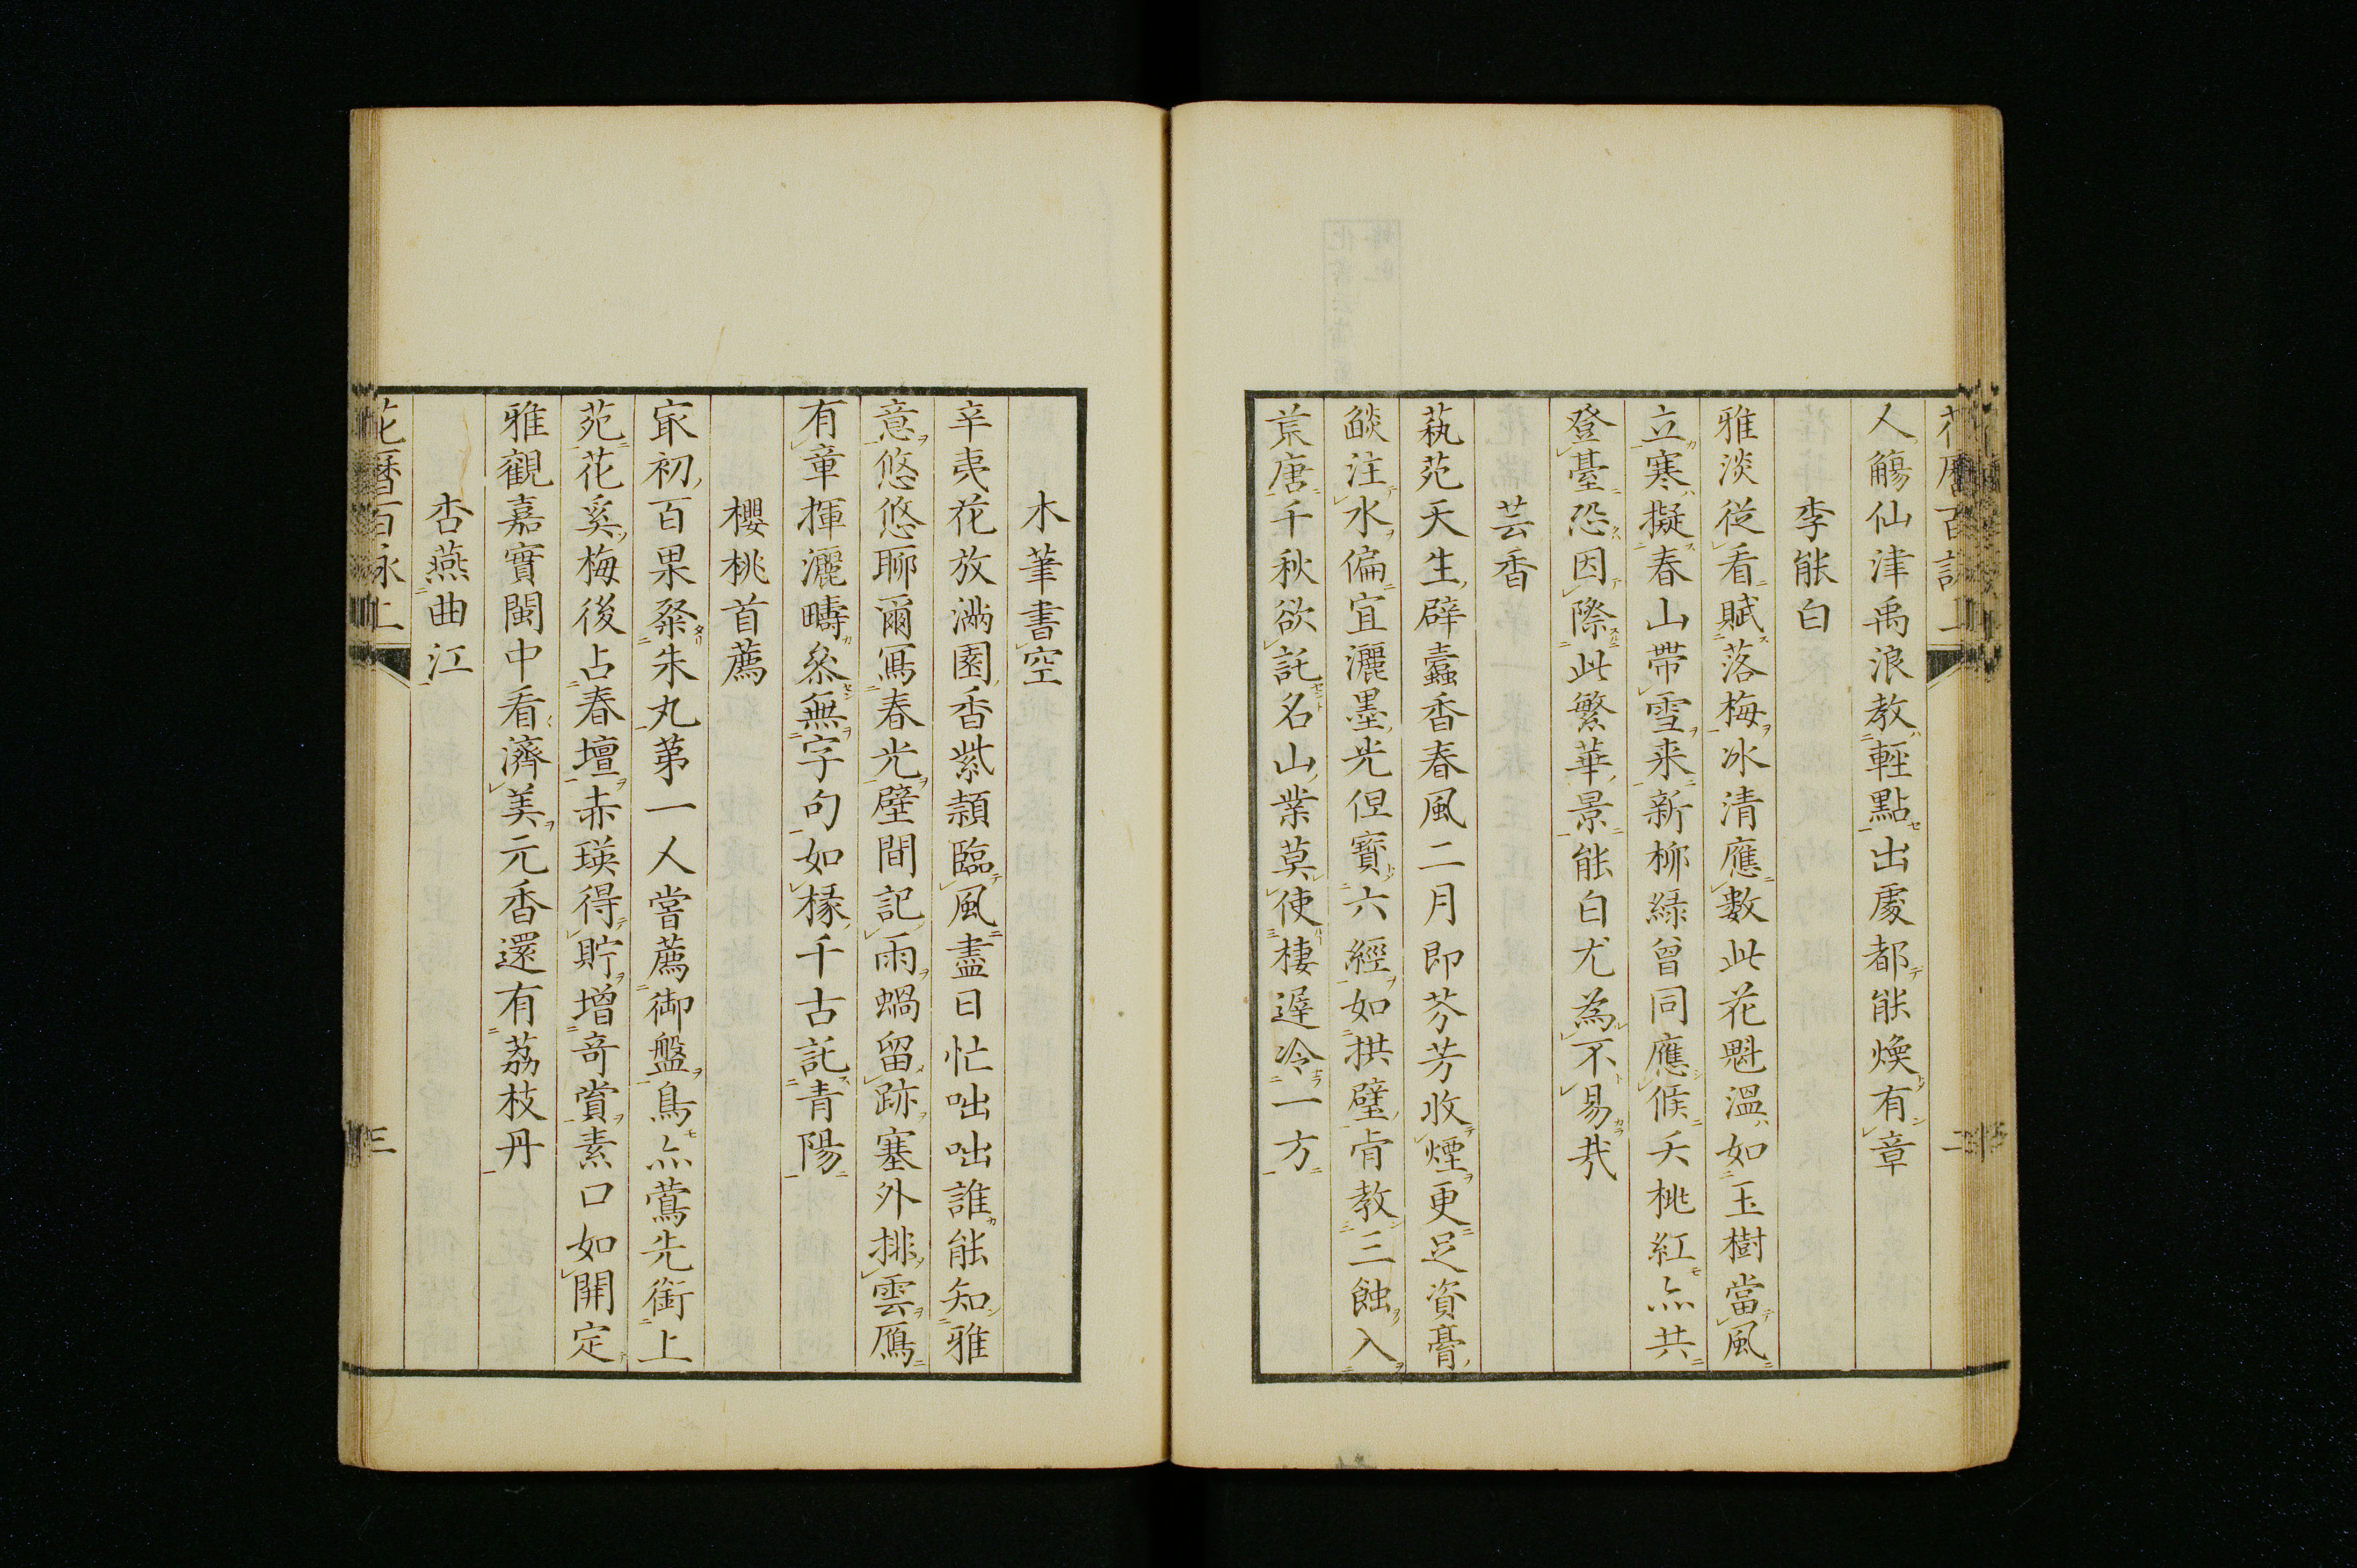 花曆百詠上
人觴仙津禹浪教輕點出處都能煥有章
李能白
雅淡從看賦落梅冰清應數此花魁溫如玉樹當風
立寒擬春山帶雪来新柳綠曾同應候夭桃紅亦共
登臺恐因際此繁華景能白尤為不易哉
芸香
蓺苑天生辟蠧香春風二月即芬芳收煙更足資膏
燄注水偏宜灑墨光但寳六經如拱璧肯教三蝕入
荒唐千秋欲託名山業莫使棲遲冷一方
二
木筆書空
辛夷花放滿園香紫穎臨風盡日忙咄咄誰能知雅
意悠悠聊爾冩春光壁間記雨蝸留跡塞外排雲鴈
有章揮灑疇叅無字句如椽千古託青陽
櫻桃首薦
㝡初百果粲朱丸第一人嘗薦御盤鳥亦鶯先銜上
苑花奚梅後占春壇赤瑛得貯增竒賞素口如開定
雅觀嘉實閩中看濟美元香還有荔枝丹
杏燕曲江
花曆百詠上
三